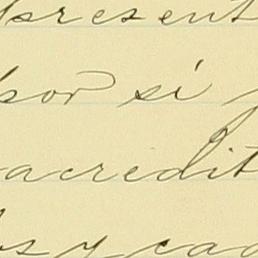 present
por si y
acredit
os y cad